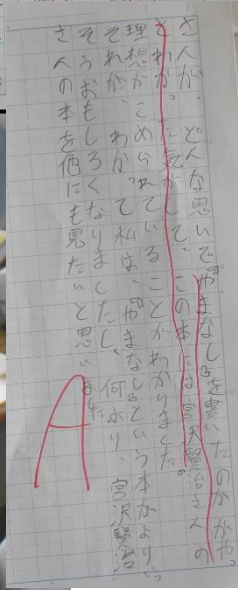 さんが、どんな思いで『やまなし』を書いたのかがやっ
とわかった気がして、この本には宮沢賢治さんの
理想がこめられていることがわかりました。
それが、わかって私は、『やまなし』という本がよりいっ
そうおもしろくなりましたし、何より、宮沢賢治
さんの本を他にも見たいと思いました。
A